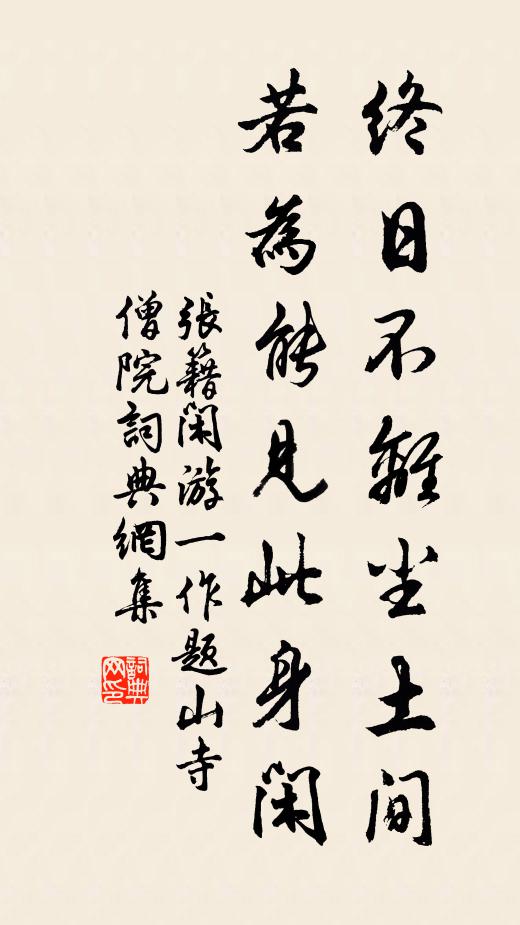 終日不離尘土間
若為能見此身閑
張籍閑游一作題山寺
僧院詞典網集
詞典网印